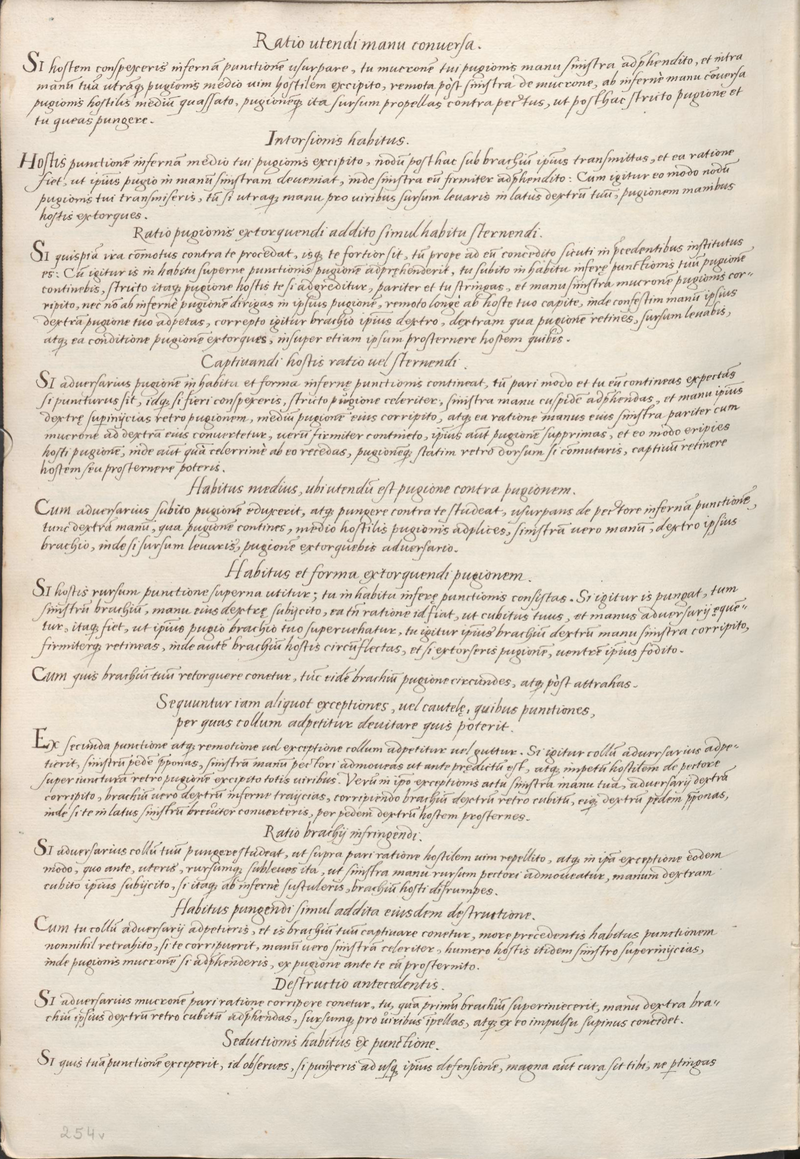 Ratio utendi manu conuersa.
SI hostem conspexeris infernā punctione usurpare, tu mucronē tui pugionis manu sinistra adphendito, et intra
manū tuā utrāq₃ pugionis medio uim hostilem excipito, remota pòst sinistra de mucrone, ab infernè manu cōuersa
pugionis hostilis mediū quassato, pugionēq₃ ita sursum propellas contra pectus, ut posthac stricto pugione et
tu queas pungere.
Intorsionis habitus.
Hostis punctionē infernā medio tui pugionis excipito, nōdū posthac sub brachiū ipsius transmittas, et ea ratione
fiet, ut ipsius pugio in manū sinistram deueniat, inde sinistra eū firmiter adphendito: Cum igitur eo modo nodū
pugionis tui transmiseris, tū si utraq₃ manu pro uiribus sursum leuaris in latus dextrū tuū, pugionem manibus
hostis extorques.
Ratio pugionis extorquendi addito simul habitu sternendi.
SI quispiā ira cōmotus contra te procedat, isq₃ te fortior sit, tū prope ad eū concedito sicuti in p̄cedentibus institutus
es: Cū igitur is in habitu supernę punctionis pugionē adprehenderit, tu subito in habitu infernę punctionis tuū pugionē
continebis, stricto itaq₃ pugione hostis te si adgreditur, pariter et tu stringas, et manu sinistra mucronē pugionis cor-
ripito, nec nō ab infernè pugionē dirigas in ipsius pugionē, remoto longè ab hoste tuo capite, inde confestim manū ipsius
dextrā pugione tuo adpetas, correpto igitur brachio ipsius dextro, dextram qua pugionē retines, sursum leuabis,
atq₃ ea conditione pugionē extorques, insuper etiam ipsum prosternere hostem quibis.
Captiuandi hostis ratio uel sternendi.
SI aduersarius pugionē in habitu et forma infernę punctionis contineat, tū pari modo et tu eū contineas expectās
si puncturus sit, idq₃ si fieri conspexeris, stricto pugione celeriter, sinistra manu cuspidē adphendas, et manu ipsius
dextrę supinijcias retrò pugionem, mediū pugionē eius corripito, atq₃ ea ratione manus eius sinistra pariter cum
mucrone ad dextrā eius conuertetur, uerū firmiter contineto, ipsius aūt pugionē supprimas, et eo modo eripies
hosti pugionē, inde aut quā celerrimè ab eo recedas, pugionēq₃ statim retrò dorsum si comutaris, captiuū retinere
hostem seu prosternere poteris.
Habitus medius, ubi utendū est pugione contra pugionem.
Cum aduersarius subito pugionē eduxerit, atq₃ pungere contra te studeat, usurpans de pectore infernā punctionē,
tunc dextrā manū, qua pugionē contines, medio hostilis pugionis adplices, sinistrā uero manū, dextro ipsius
brachio, inde si sursum leuaris, pugionē extorquebis aduersario.
Habitus et forma extorquendi pugionem.
SI hostis rursum punctione superna utitur; tu in habitu infernę punctionis consistas. Si igitur is pungat, tum
sinistrū brachiū, manu eius dextrę subijcito, ea tn̄ ratione id fiat, ut cubitus tuus, et manus aduersarij ęque-
tur, itaq₃ fiet, ut ipsius pugio brachio tuo superuehatur, tu igitur ipsius brachiū dextrū manu sinistra corripito,
firmiterq₃ retineas, inde aūtē brachiū hostis circūflectas, et si extorseris pugionē, uentrē ipsius fodito.
Cum quis brachiū tuū retorquere conetur, tūc eidē brachiū pugione circundes, atq₃ pòst attrahas.
Sequuntur iam aliquot exceptiones, uel cautelę, quibus punctiones,
per quas collum adpetitur deuitare quis poterit.
Ex secunda punctione atq₃ remotione uel exceptione collum adpetitur uel guttur. Si igitur collū aduersarius adpe-
tierit, sinistrū pedē p̄ponas, sinistrā manū pectori admoueas ut ante predictū est, atq₃ impetū hostilem de pectore
super iuncturā retrò pugionē excipito totis uiribus. Verū in ipso exceptionis actu sinistra manu tuā, aduersarij dextrā
corripito, brachiū uerò dextrū infernè traijcias, corripiendo brachiū dextrū retrò cubitū, eiq₃ dextrū pedem p̄ponas,
inde si te in latus sinistrū breuiter conuerteris, per pedem dextrū hostem prosternes.
Ratio brachij infringendi.
SI aduersarius collū tuū pungere studeat, ut supra pari ratione hostilem uim repellito, atq₃ in ipsa exceptione eodem
modo, quo ante, uteris, rursumq₃ subleues ita, ut sinistra manu rursum pectori admoueatur, manum dextram
cubito ipsius subijcito, si itaq₃ ab infernè sustuleris, brachiū hosti disrumpes.
Habitus pungendi simul addita eiusdem destructione.
Cum tu collū aduersarij adpetieris, et is brachiū tuū captiuare conetur, more precedentis habitus punctionem
nonnihil retrahito, si te corripuerit, manū uero sinistrā celeriter, humero hostis itidem sinistro superinijcias,
inde pugionis mucronē si adphenderis, ex pugione ante te eū prosternito.
Destructio antecedentis.
SI aduersarius mucronē pari ratione corripere conetur, tu, quā primū brachiū superiniecerit, manu dextra bra-
chiū ipsius dextrū retrò cubitū adphendas, sursumq₃ pro uiribus ipellas, atq₃ ex eo impulsu supinus concidet.
Seductionis habitus ex punctione.
SI quis tuā punctionē exceperit, id obserues, si punxeris ad usq₃ ipsius defensionē, magna aūt cura sit tibi, ne ptingas
254v